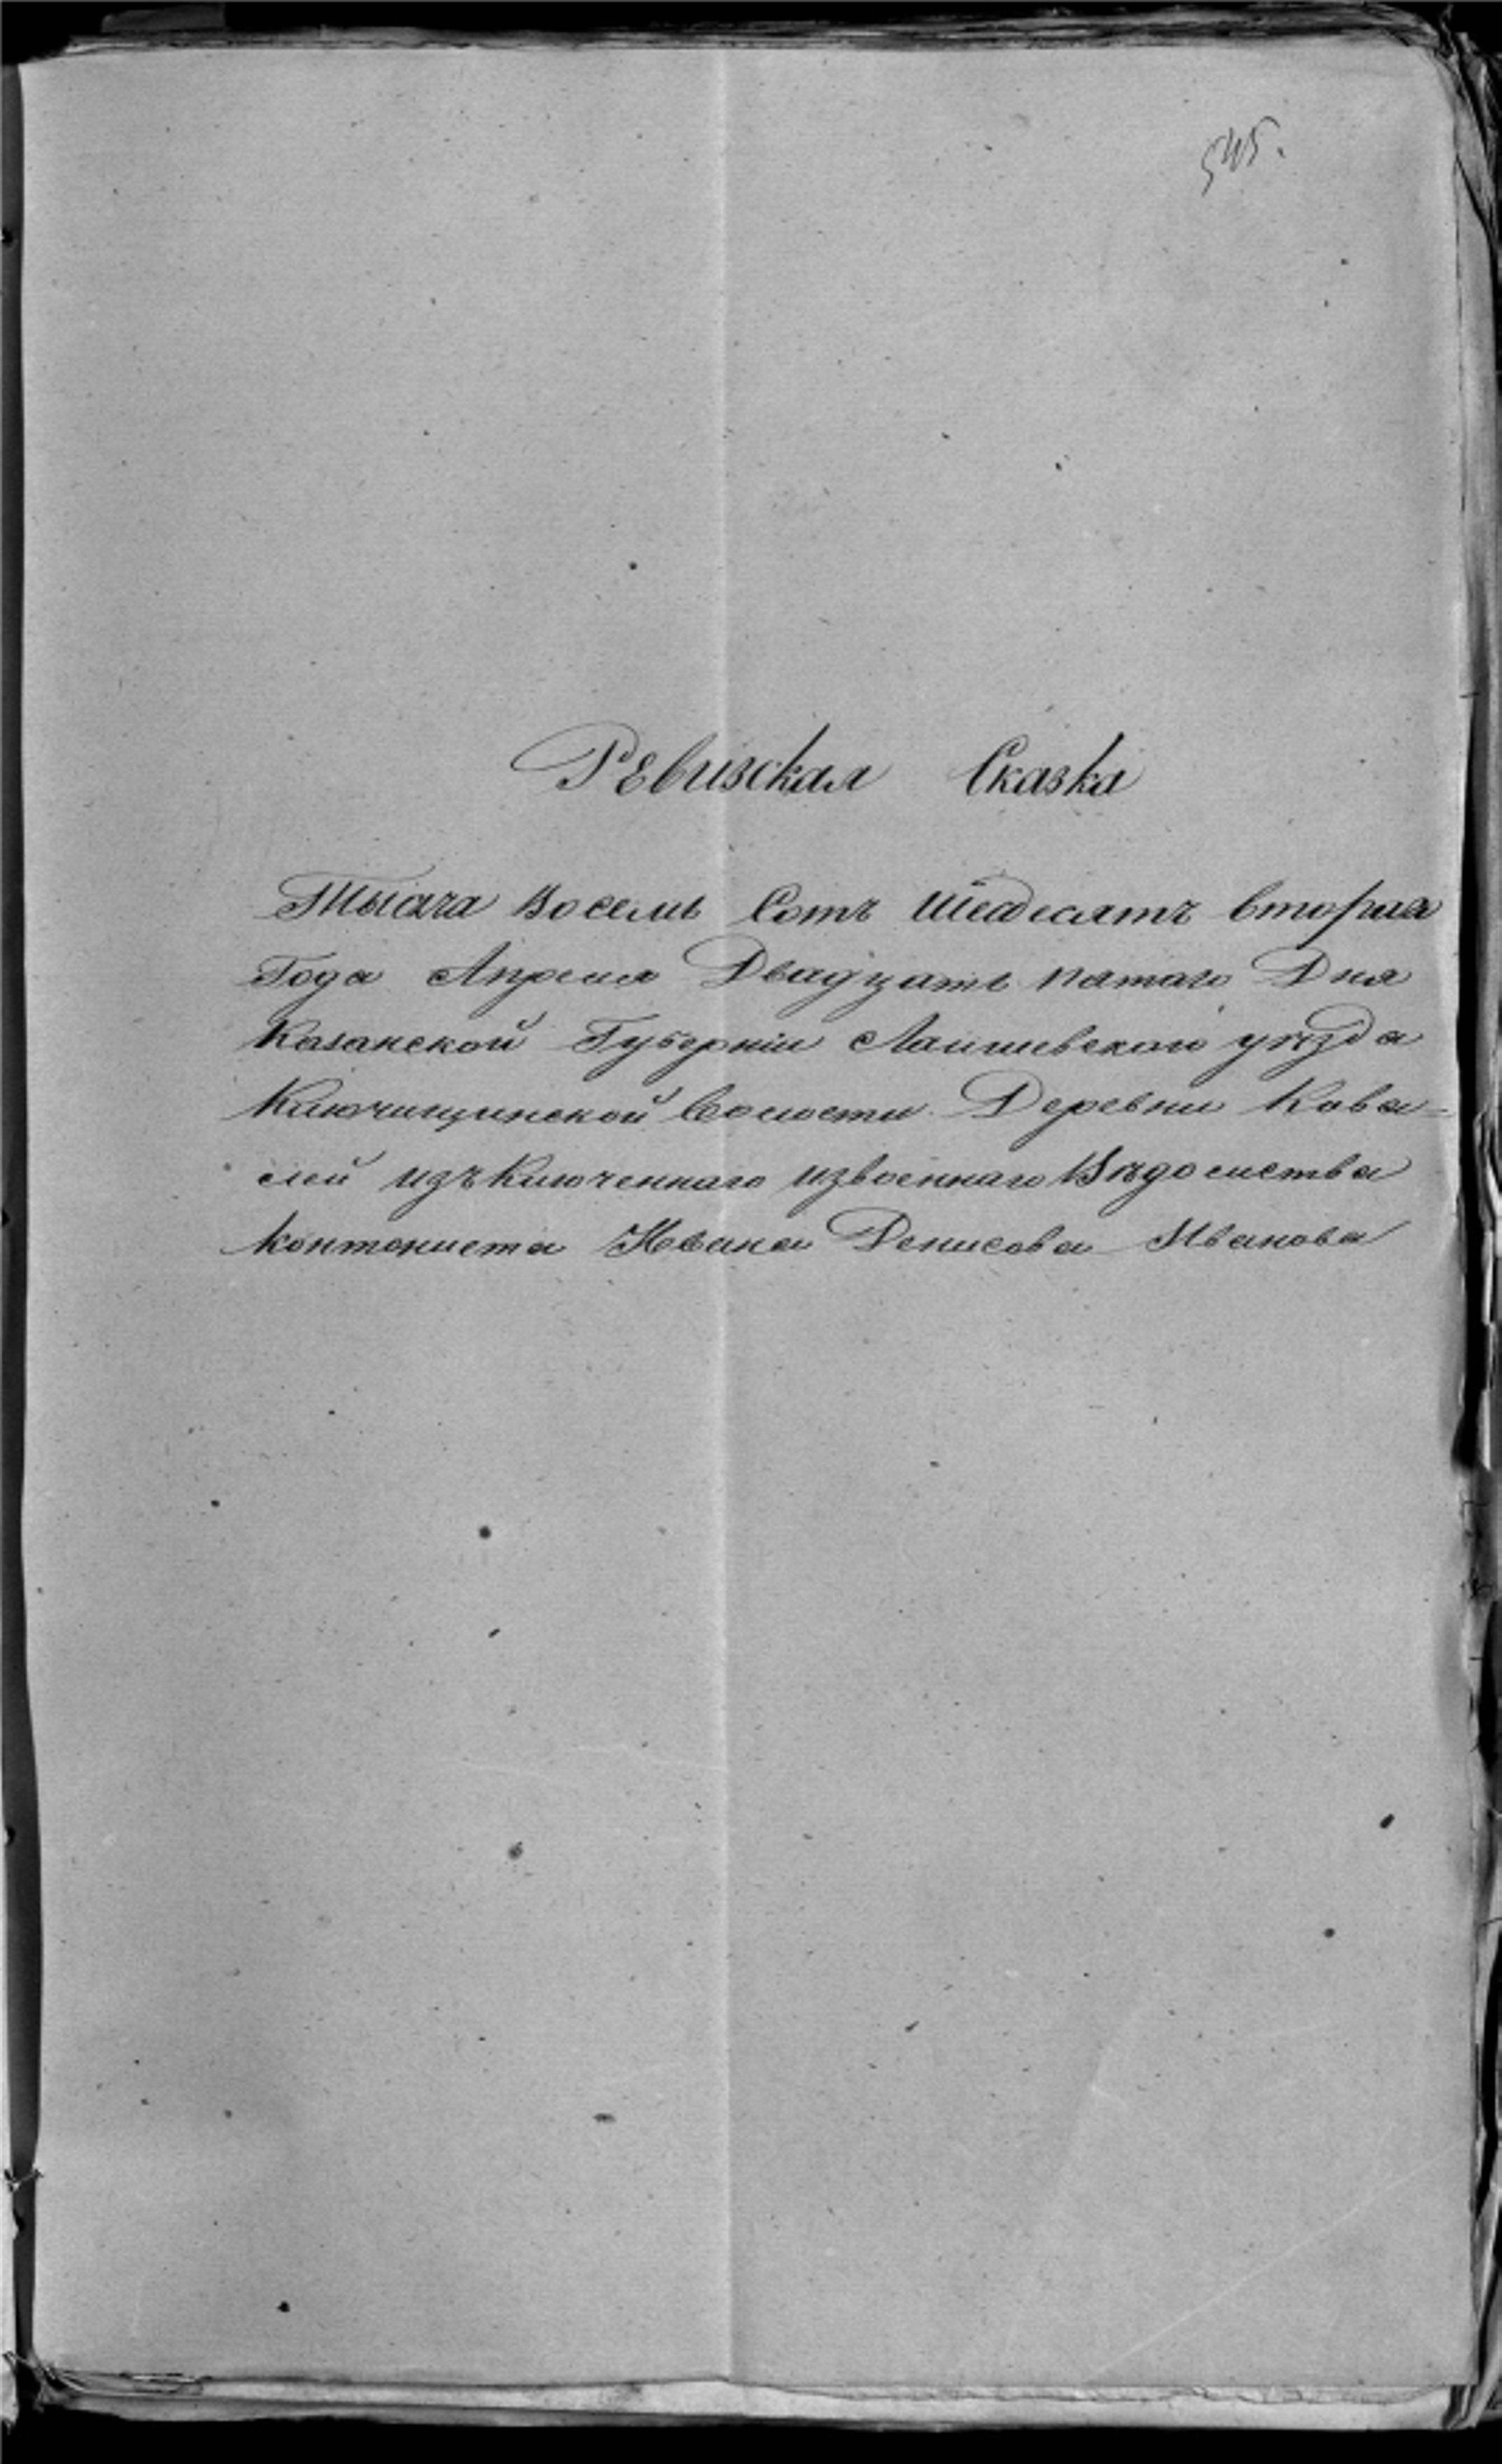 545.
Ревизская Сказка
Тысяча Восемь Сотъ Шедесятъ втораго
Года Апреля Двадцать пятаго Дня
Казанской Губерніи Лаишевскаго уѣзда
Ключищинской Волости Деревни Кова-
лей изъключеннаго извоеннаго Вѣдомства
контониста Ивана Денисова Иванова